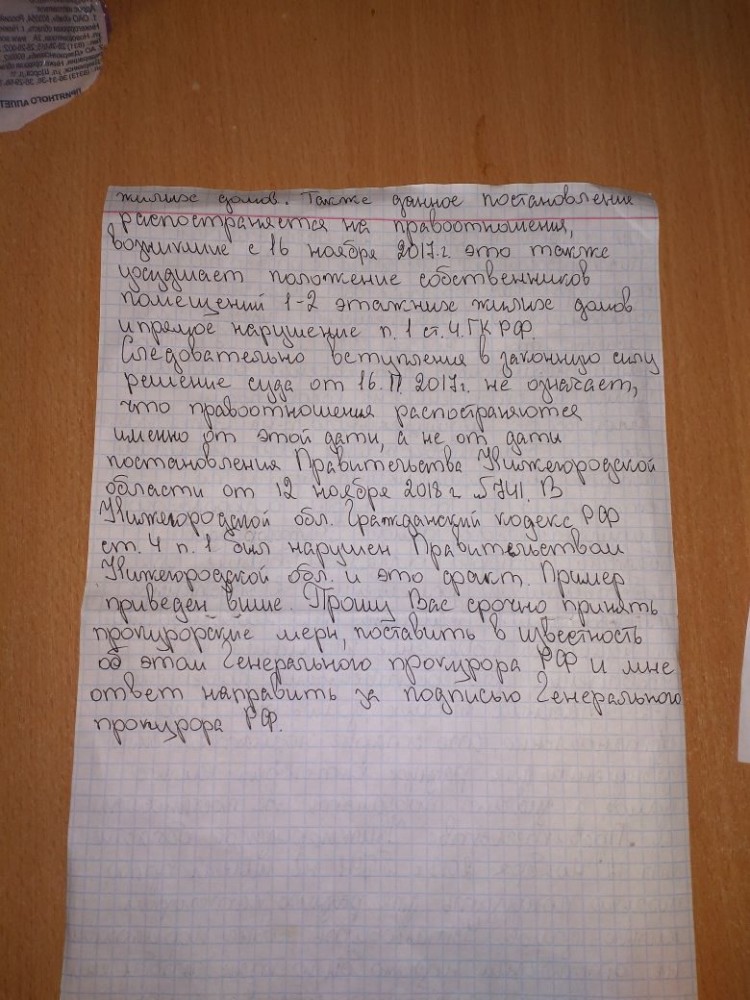 жилых домов. Также данное постановление
распостраняется на правоотношения,
возникшие с 16 ноября 2017г. это также
ухудшает положение собственников
помещений 1-2 этажних жилих домов
и прямое нарушение п.1 ст.4. ГК РФ.
Следовательно вступления в законную силу
решение суда от 16.11.2017г. не означает,
что правоотношения распостраняются
именно от этой дати, а не от дати
постановления Правительства Нижегородской
области от 12 ноября 2018 г №741. В
Нижегородской обл. Гражданский кодекс РФ
ст. 4 п. 1 был нарушен Правительством
Нижегородской обл. и это факт. Пример
приведен више. Прошу Вас срочно принять
прокурорские мери, поставить в известность
об этом Генерального прокурора РФ и мне
ответ направить за подписью Генерального
прокурора РФ.
ПРИЯТНОГО АППЕТ